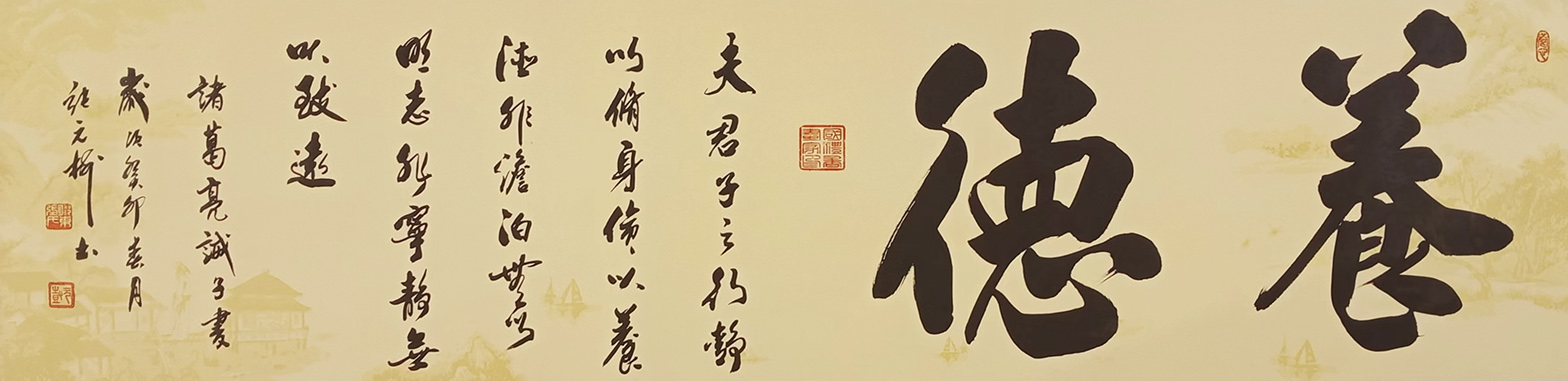 養德
夫君子之行靜
以脩身儉以養
德非澹泊無以
明志非寧靜無
以致遠
諸葛亮誡子書
歲次癸卯春月
張元 书